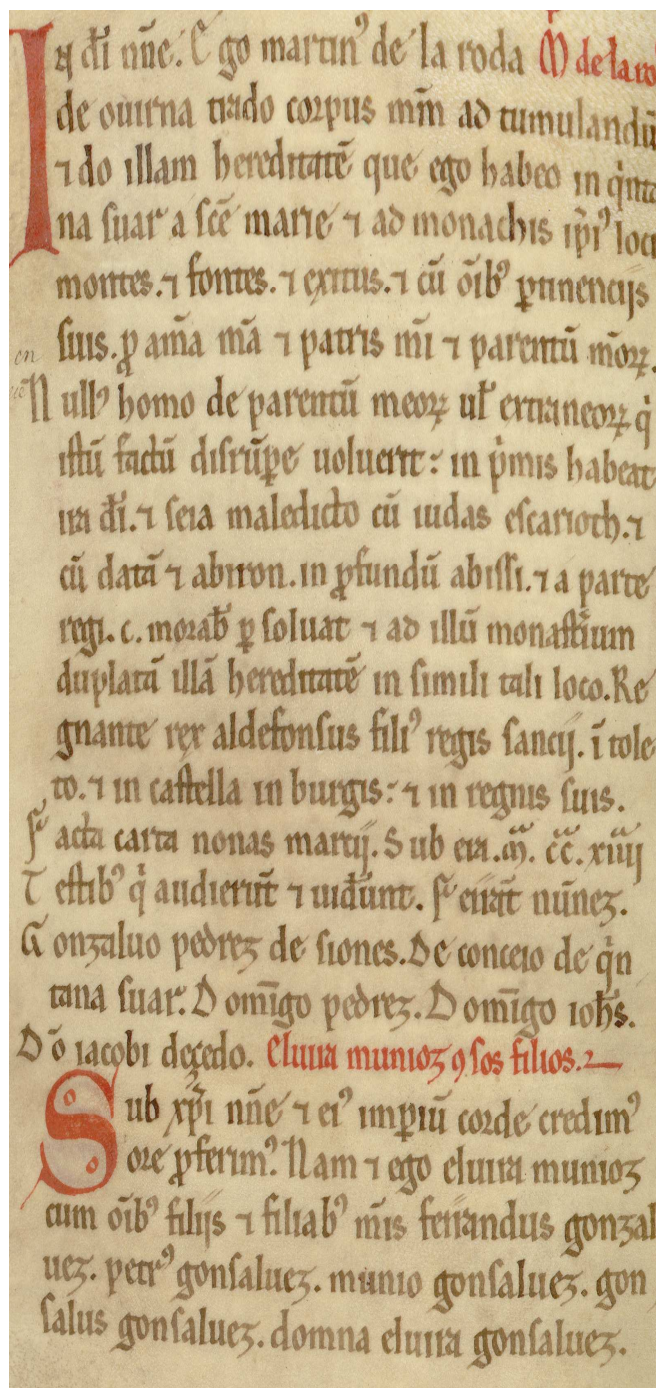 In dī nn̄e. Ego martin⁹ de la roda M de la ro
de ouirna trado corpus mm̄ ad tumulandū
⁊ do illam hereditatē que ego habeo in qͥnta
na suar a sc̄e marie ⁊ ad monachis ip̄i⁹ loci
montes. ⁊ fontes. ⁊ exitus. ⁊ cū oīb⁹ ꝑtinencijs
suis. ꝓ am̄a mā ⁊ patris mī ⁊ parentū mōꝝ.
Null⁹ homo de parentū meoꝝ ul̄ extraneoꝝ qͥ
istū factū disrūꝑe uoluerit: in pͥmis habeat
ira dī. ⁊ seia maledicto cū iudas escarioth. ⁊
cū datā ⁊ abiron. in ꝓfundū abissi. ⁊ a parte
regi. c. morab̄ ꝑ soluat ⁊ ad illū monast̄ium
duplatā illā hereditatē in simili tali loco. Re
gnante rex aldefonsus fili⁹ regis sancij. ī tole
to. ⁊ in castella in burgis: ⁊ in regnis suis.
Facta carta nonas martij. Sub era. m̄. cc̄. xiiij
Testib⁹ qͥ audierūt ⁊ uid̄unt. Ferrāt nūnez.
Gonzaluo pedrez de siones. De conceio de qͥn
tana suar. Domīgo pedrez. Domīgo ioh̄s.
Dō iacobi deçedo. Eluira munioz ⁊ sos filios.
Sub xp̄i nn̄e ⁊ ei⁹ imꝑiū corde credim⁹
ore ꝓferim⁹. Nam ⁊ ego eluira munioz
cum oīb⁹ filijs ⁊ filiab⁹ mīs ferrandus gonzal
uez. petr⁹ gonsaluez. munio gonsaluez. gon
salus gonsaluez. domna eluira gonsaluez.